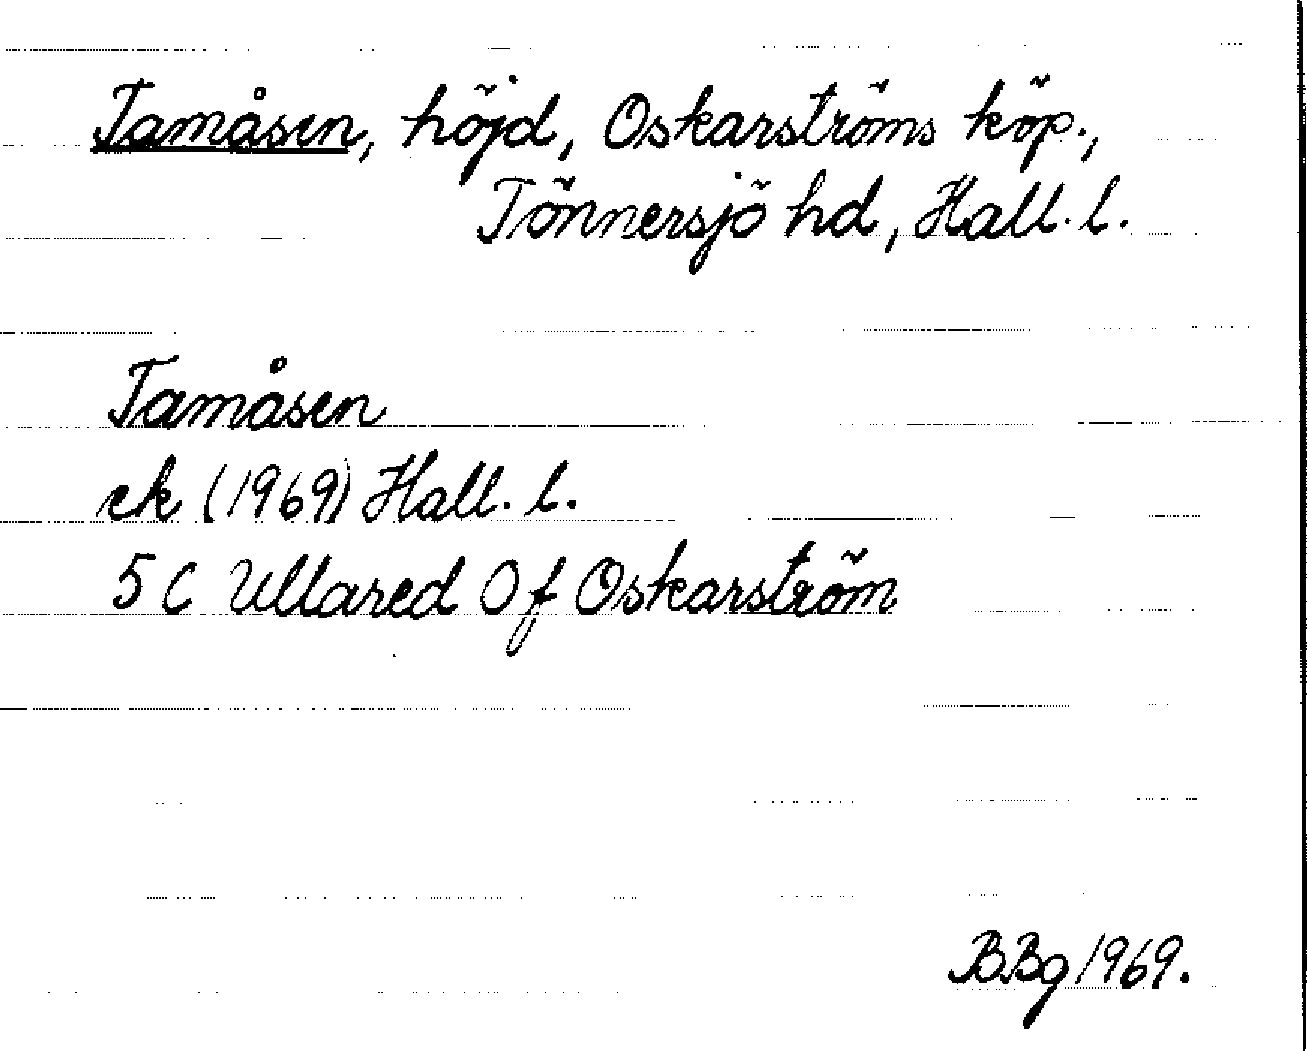 Tamåsen, höjd, Oskarströms köp.,
Tönnersjö hd, Hall. l.
Tamåsen
ek (1969) Hall. l.
5 C Ullared 0 f Oskarström
BBg 1969.